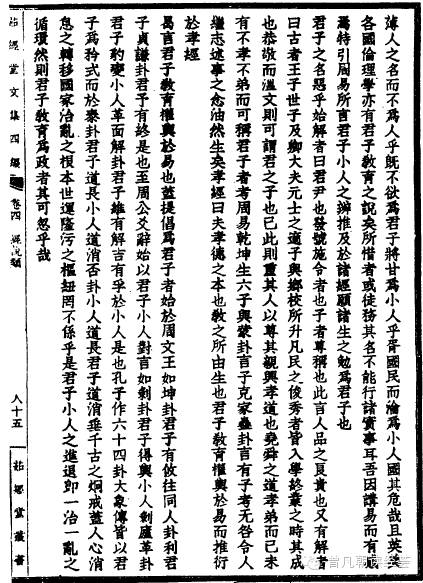 薄人之名而不為人乎旣不欲為君子將甘為小人乎胥國民而淪為小人國其危哉且英美
各國倫理學亦有君子敎育之說矣所惜者或徒務其名不能行諸實事耳吾因講易而有感
焉特引周易所言君子小人之辨推及於諸經願諸生之勉為君子也
君子之名惡乎始解者曰君尹也發號施令者也子者尊稱也此言人品之良貴也又有解者
曰古者王子世子及卿大夫元士之適子與鄉校所升凡民之俊秀者皆入學終業之時其成
也恭敬而溫文則可謂君之子也已此則重其人以尊其親興孝道也堯舜之道孝弟而已未
有不孝不弟而可稱君子者考周易乾坤生六子與蒙卦言子克家蠱卦言有子考无咎令人
繼志述事之念油然生矣孝經曰夫孝德之本也敎之所由生也君子敎育權輿於易而推衍
於孝經
曷言君子敎育權輿於易也蓋提倡為君子者始於周文王如坤卦君子有攸往同人卦利君
子貞謙卦君子有終是也至周公爻辭始以君子小人對言如剝卦君子得輿小人剝廬革卦
君子豹變小人革面解卦君子維有解吉有孚於小人是也孔子作六十四卦大象傳皆以君
子為矜式而於泰卦君子道長小人道消否卦小人道長君子道消垂千古之炯戒蓋人心消
息之轉移國家治亂之根本世運隆污之樞紐罔不係乎是君子小人之進退卽一治一亂之
循環然則君子敎育為政者其可忽乎哉
茹經堂文集四編
卷四
經說類
八十五
茹經堂叢書